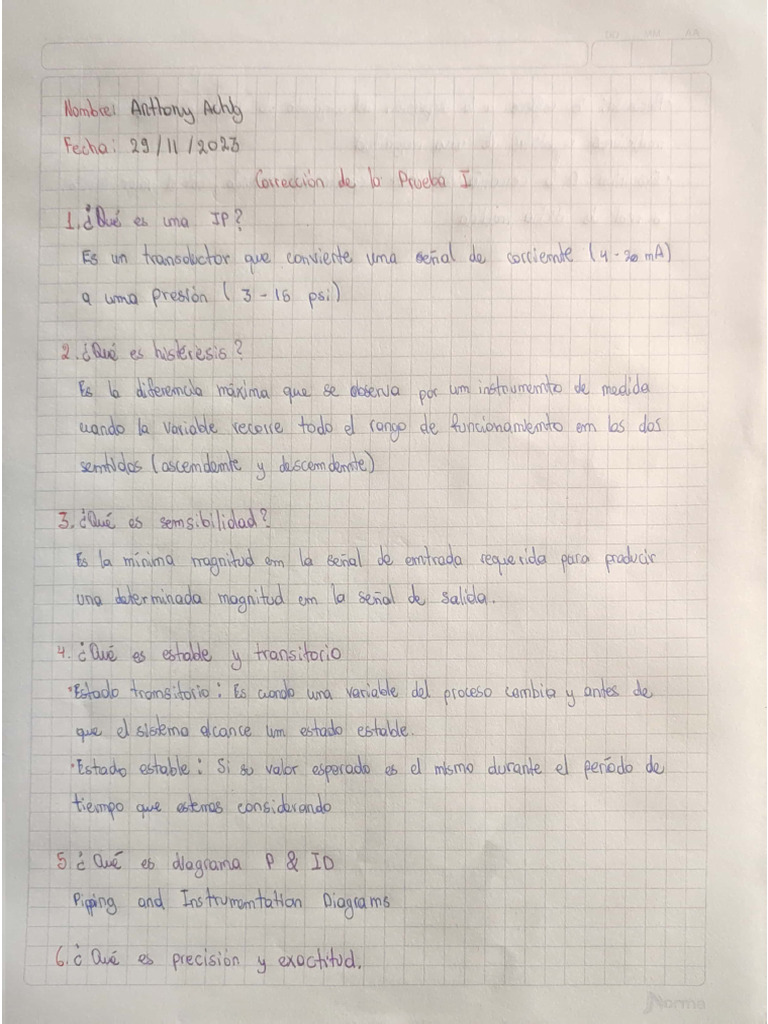 Nombre: Anthony Achig
Fecha: 29/11/2023
Corrección de la Prueba I
1. ¿Qué es una IP?
Es un transductor que convierte una señal de corriente (4-20 mA)
a una presión (3-15 psi)
2. ¿Qué es histéresis?
Es la diferencia máxima que se observa por un instrumento de medida
cuando la variable recorre todo el rango de funcionamiento en los dos
sentidos (ascendente y descendente)
3. ¿Qué es sensibilidad?
Es la mínima magnitud en la señal de entrada requerida para producir
una determinada magnitud en la señal de salida.
4. ¿Qué es estable y transitorio
•Estado transitorio: Es cuando una variable del proceso cambia y antes de
que el sistema alcance un estado estable.
•Estado estable: Si su valor esperado es el mismo durante el período de
tiempo que estemos considerando
5. ¿Qué es diagrama P & ID
Pipping and Instrumentation Diagrams
6. ¿Qué es precisión y exactitud.
Norma